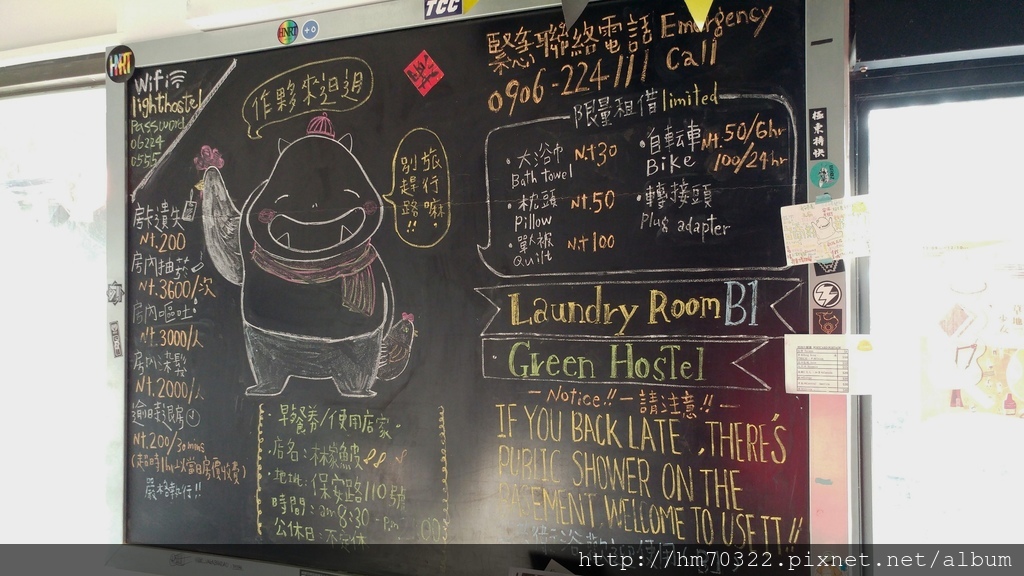 TCC
HNRT
HNRT
Wifi
lighthostel
Password
06224
0555
作夥來迌迌
別趕路!!
旅行嘛
緊急聯絡電話 Emergency Call
0906-224111
限量租借 limited
·大浴巾 Nt30
Bath towel
·枕頭 Nt.50
Pillow
·單人被 Nt100
Quilt
·自轉車 Nt.50/6hr
Bike 100/24hr
·轉接頭
Plug adapter
房卡遺失
Nt.200
房內抽菸
Nt.3600/次
房內嘔吐
Nt.3000/人
房內
Nt.2000/人
逾時退房
Nt.200/30mins
嚴格執行!!
Laundry Room B1
Green Hostel
- Notice!! - 請注意!! -
IF YOU BACK LATE, THERE'S
PUBLIC SHOWER ON THE
BASEMENT. WELCOME TO USE IT!!
·早餐券/使用店家·
·店名:
·地址: 保安路110號
·時間: am 8:30 - pm
·公休日:
極東特快
http://hm70322.pixnet.net/album